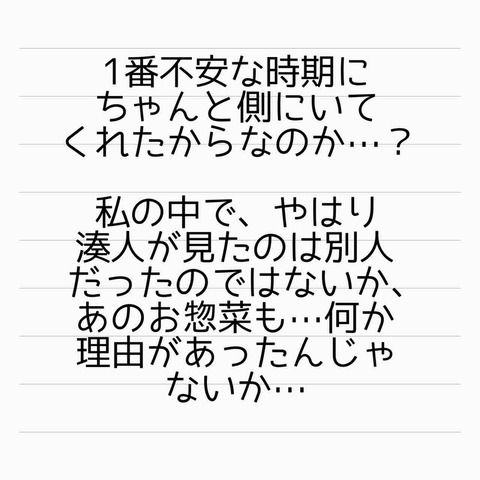 1番不安な時期に
ちゃんと側にいて
くれたからなのか…？
私の中で、やはり
湊人が見たのは別人
だったのではないか、
あのお惣菜も…何か
理由があったんじゃ
ないか…